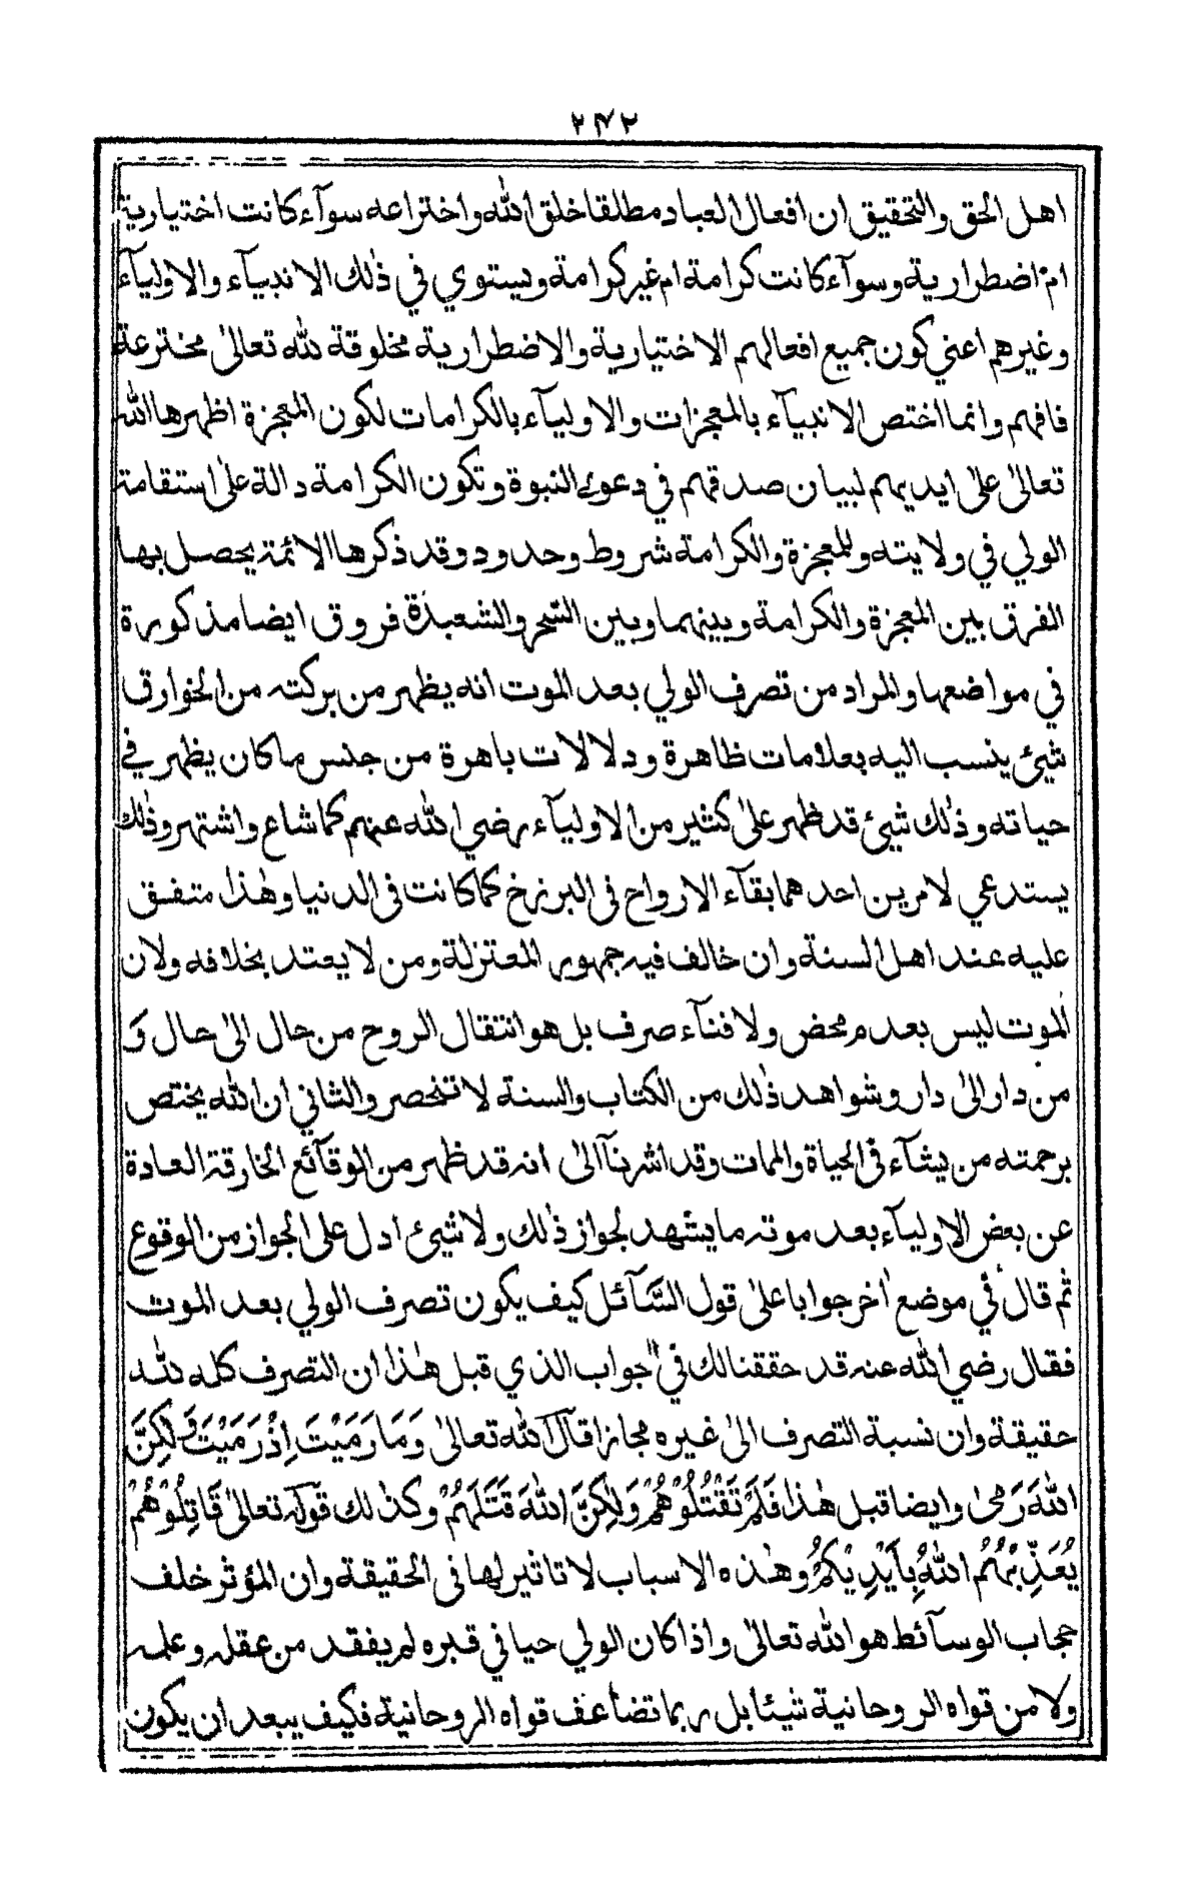 ٢٧٢
اهل الحق والتحقيق ان افعال العباد مطلقا خلق الله واختراعه سوآء كانت اختيارية
ام اضطرارية وسوآء كانت كرامة ام غير كرامة ويستوي في ذٰلك الانبيآء والاوليآء
وغيرهم اعني كون جميع افعالهم الاختيارية والاضطرارية مخلوقة لله تعالىٰ مخترعة
فافهم وانما اختص الانبيآء بالمعجزات والاوليآء بالكرامات لكون المعجزة اظهرها الله
تعالىٰ علىٰ ايديهم لبيان صدقهم في دعوى النبوة وتكون الكرامة دالة علىٰ استقامة
الولي في ولايته وللمعجزة والكرامة شروط وحدود وقد ذكرها الائمة يحصل بها
الفرق بين المعجزة والكرامة وبينهما وبين السّحر والشعبذة فروق ايضا مذكورة
في مواضعها والمراد من تصرف الولي بعد الموت انه يظهر من بركته من الخوارق
شيئ ينسب اليه بعلامات ظاهرة ودلالات باهرة من جنس ما كان يظهر في
حياته وذٰلك شيئ قد ظهر علىٰ كثير من الاوليآء رضي الله عنهم كما شاع واشتهر وذٰلك
يستدعي لامرين احدهما بقآء الارواح في البرزخ كما كانت في الدنيا وهٰذا متفق
عليه عند اهل السنة وان خالف فيه جمهور المعتزلة ومن لا يعتد بخلافه ولان
الموت ليس بعدم محض ولا فنآء صرف بل هو انتقال الروح من حال الىٰ حال وَ
من دار الىٰ دار وشواهد ذٰلك من الكتاب والسنة لا تنحصر والثاني ان الله يختص
برحمته من يشآء في الحياة والممات وقد اشرنآ الىٰ انه قد ظهر من الوقآئع الخارقة العادة
عن بعض الاوليآء بعد موته ما يشهد لجواز ذٰلك ولا شيئ ادل على الجواز من الوقوع
ثم قال في موضع اٰخر جوابا علىٰ قول السَّآئل كيف يكون تصرف الولي بعد الموت
فقال رضي الله عنه قد حققنا لك في الجواب الذي قبل هٰذا ان التصرف كله لله
حقيقة وان نسبة التصرف الىٰ غيره مجاز اقال الله تعالىٰ وَمَا رَمَيْتَ اِذْ رَمَيْتَ وَلٰكِنَّ
اللهَ رَمىٰ وايضا قبل هٰذا فَلَمْ تَقْتُلُوْهُمْ وَلٰكِنَّ اللهَ قَتَلَهُمْ وكذٰلك قوله تعالىٰ قَاتِلُوْهُمْ
يُعَذِّبْهُمُ اللهُ بِاَيْدِيْكُمْ وهٰذه الاسباب لا تاثير لها في الحقيقة وان المؤثر خلف
حجاب الوسآئط هو الله تعالىٰ واذا كان الولي حيا في قبره لم يفقد من عقله وعلمه
ولا من قواه الروحانية شيئا بل ربما تضاعف قواه الروحانية فكيف يبعد ان يكون